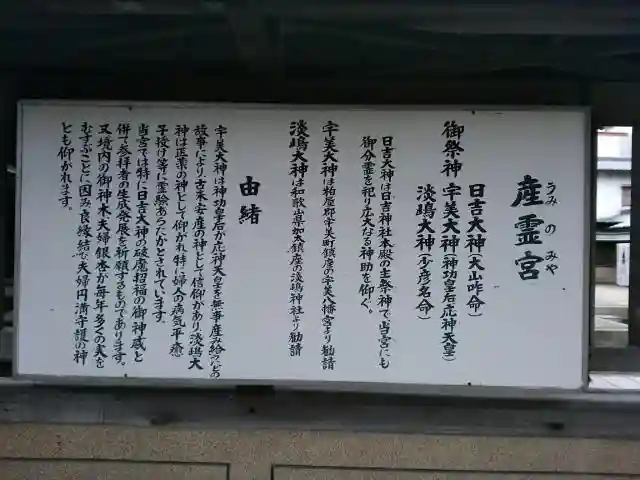 産霊宮
うみのみや
御祭神
日吉大神(大山咋命)
宇美大神(神功皇后・応神天皇)
淡嶋大神(少彦名命)
日吉大神は日吉神社本殿の主祭神で当宮にも
御分霊を祀り広大なる神助を仰ぐ。
宇美大神は粕屋郡宇美町鎮座の宇美八幡宮より勧請
淡嶋大神は和歌山県加太鎮座の淡嶋神社より勧請
由緒
宇美大神は神功皇后が応神天皇を無事産み給ふたとの
故事により古来安産の神として信仰があり淡嶋大
神は医薬の神として仰がれ特に婦人の病気平癒
子授け等に霊験あらたかとされている。
当宮では特に日吉大神の破魔招福の御神威と
併て参拝者の生成発展を祈願するものであります。
又境内の御神木夫婦銀杏が毎年多くの実を
むすぶことに因み良縁結び夫婦円満守護の神
とも仰がれます。